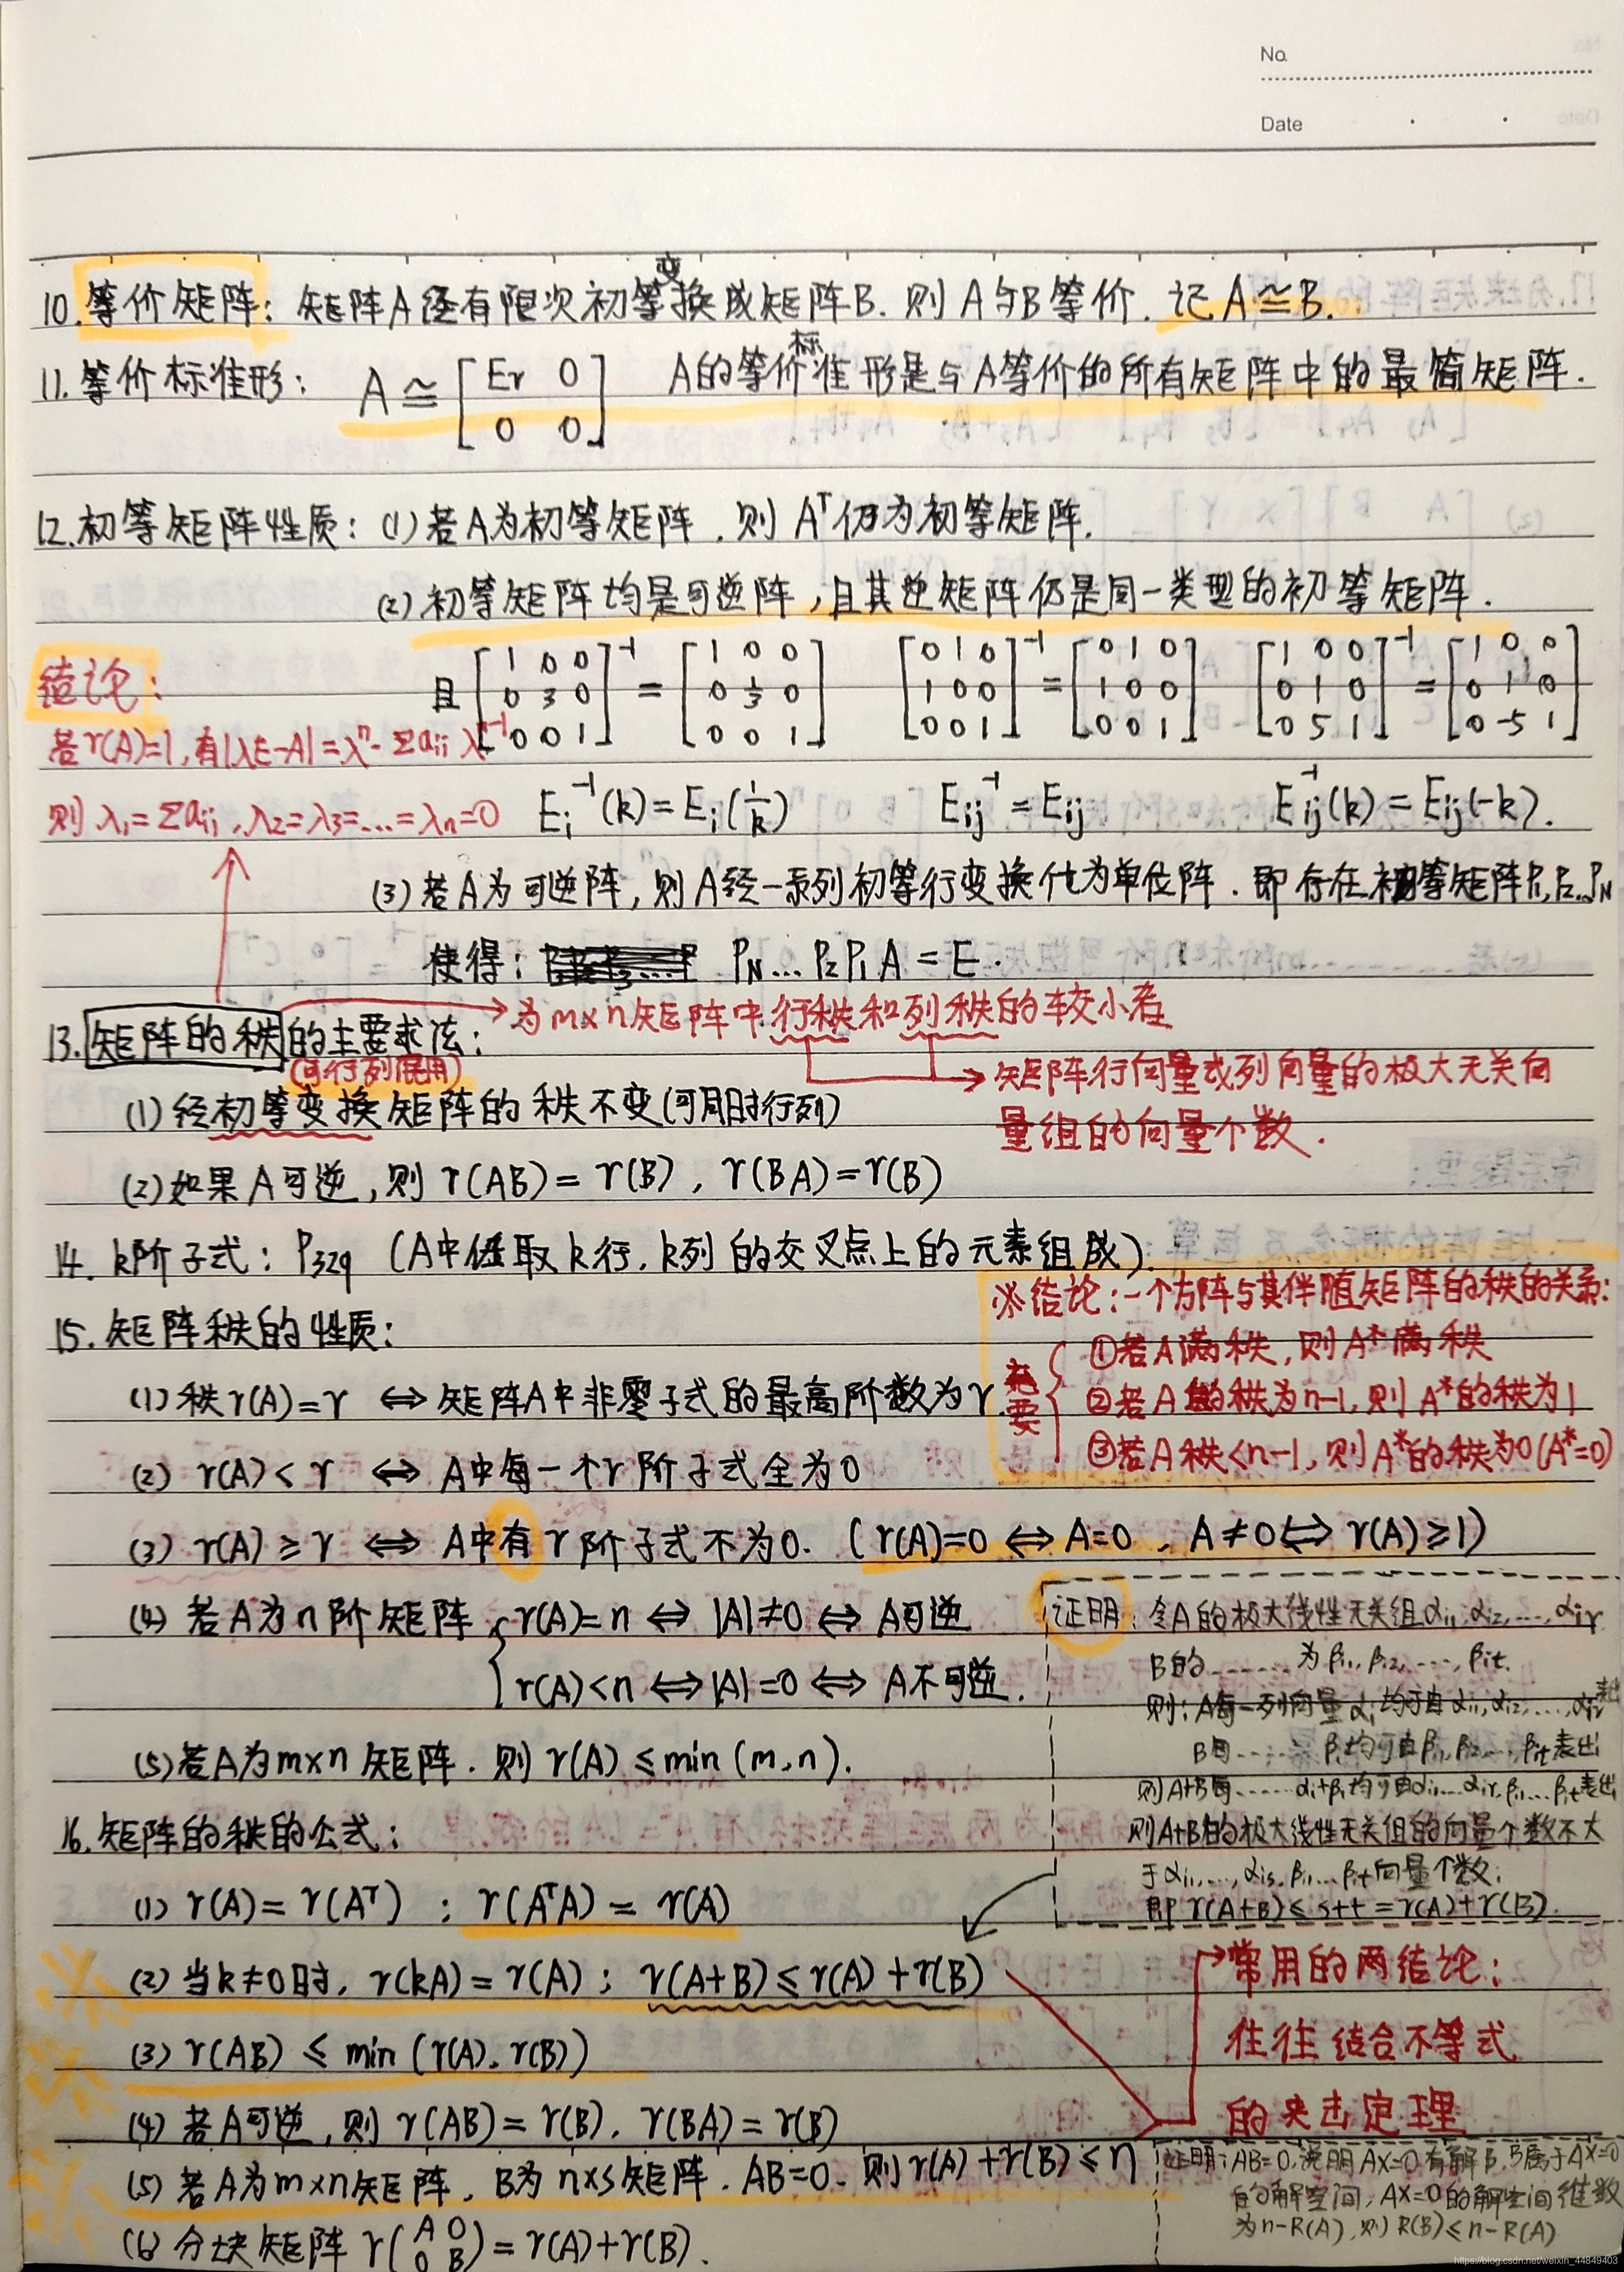 No.
Date
10.等价矩阵：矩阵A经有限次初等变换成矩阵B.则A与B等价.记A≅B.
11.等价标准形：A≅[Er 0; 0 0] A的等价标准形是与A等价的所有矩阵中的最简矩阵.
12.初等矩阵性质：(1)若A为初等矩阵.则Aᵀ仍为初等矩阵.
(2)初等矩阵均是可逆阵,且其逆矩阵仍是同一类型的初等矩阵.
且[1 0 0; 0 3 0; 0 0 1]⁻¹=[1 0 0; 0 1/3 0; 0 0 1] [0 1 0; 1 0 0; 0 0 1]⁻¹=[0 1 0; 1 0 0; 0 0 1] [1 0 0; 0 1 0; 0 5 1]⁻¹=[1 0 0; 0 1 0; 0 -5 1]
结论：
若r(A)=1,有|λE-A|=λⁿ-Σaii λⁿ⁻¹
则λ₁=Σaii,λ₂=λ₃=...=λn=0
Ei⁻¹(k)=Ei(1/k) Eij⁻¹=Eij Eij⁻¹(k)=Eij(-k).
(3)若A为可逆阵,则A经一系列初等行变换化为单位阵.即存在初等矩阵P₁,P₂…PN
使得：PN…P₂P₁A=E.
→为m×n矩阵中行秩和列秩的较小者
13.矩阵的秩的主要求法：
(可行列混用)
→矩阵行向量或列向量的极大无关向
量组的向量个数.
(1)经初等变换矩阵的秩不变(可同时行列)
(2)如果A可逆,则r(AB)=r(B),r(BA)=r(B)
14.k阶子式：P329(A中任取k行,k列的交叉点上的元素组成).
15.矩阵秩的性质：
※结论：一个方阵与其伴随矩阵的秩的关系：
充要
①若A满秩,则A*满秩
②若A的秩为n-1,则A*的秩为1
③若A秩<n-1,则A*的秩为0(A*=0)
(1)秩r(A)=r ⇔ 矩阵A中非零子式的最高阶数为r.
(2)r(A)<r ⇔ A中每一个r阶子式全为0
(3)r(A)≥r ⇔ A中有r阶子式不为0.(r(A)=0⇔A=0,A≠0⇔r(A)≥1)
(4)若A为n阶矩阵{r(A)=n⇔|A|≠0⇔A可逆
r(A)<n⇔|A|=0⇔A不可逆.
(5)若A为m×n矩阵.则r(A)≤min(m,n).
证明：令A的极大线性无关组αi1,αi2,…,αir
B的……为βi1,βi2,…,βit.
则：A每一列向量αi均可由αi1,αi2,…,αir表出
B每……βi均可由βi1,βi2…,βit表出
则A+B每……αi+βi均可由αi1…αir,βi1…βit表出
则A+B的极大线性无关组的向量个数不大
于αi1,…,αis,βi1…βit向量个数；
即r(A+B)≤s+t=r(A)+r(B).
16.矩阵的秩的公式：
(1)r(A)=r(Aᵀ)；r(AᵀA)=r(A)
(2)当k≠0时,r(kA)=r(A)；r(A+B)≤r(A)+r(B)
(3)r(AB)≤min(r(A),r(B))
(4)若A可逆,则r(AB)=r(B),r(BA)=r(B)
(5)若A为m×n矩阵,B为n×s矩阵.AB=0.则r(A)+r(B)≤n
(6)分块矩阵r(A 0; 0 B)=r(A)+r(B).
→常用的两结论：
往往结合不等式
的夹击定理
证明：AB=0,说明AX=0有解B.B属于AX=0
的解空间,AX=0的解空间维数
为n-R(A),则R(B)≤n-R(A)
https://blog.csdn.net/weixin_44849403